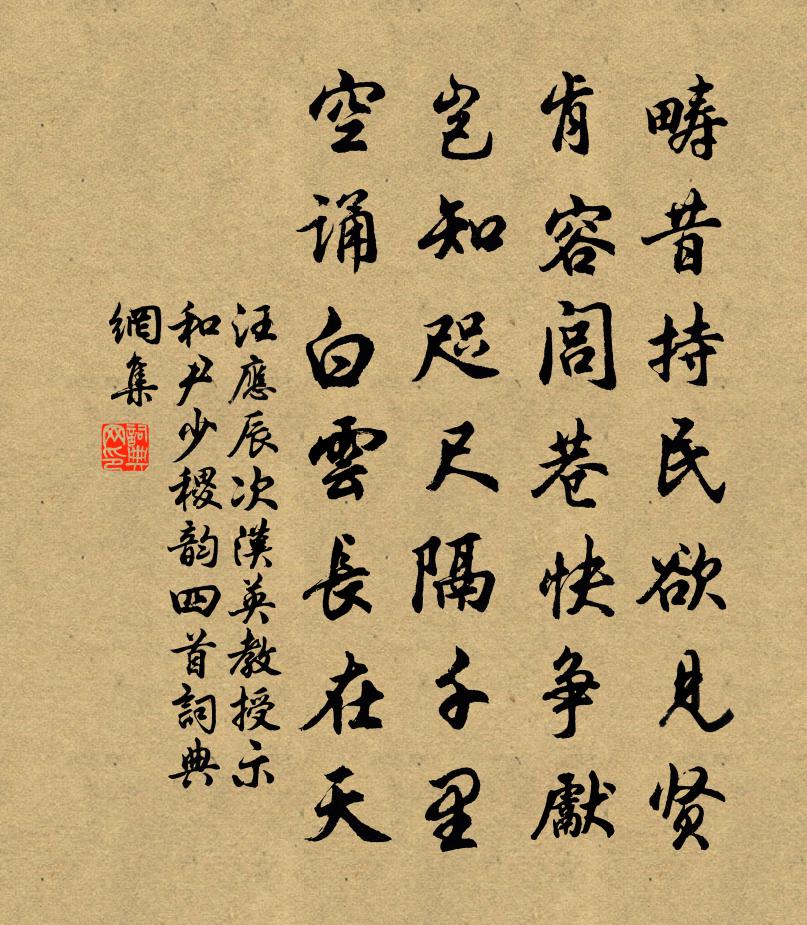 疇昔持民欲見贤
肯容閭巷快争獻
岂知咫尺隔千里
空诵白雲長在天
汪應辰次漢英教授示
和尹少稷韵四首詞典
網集
詞典网印